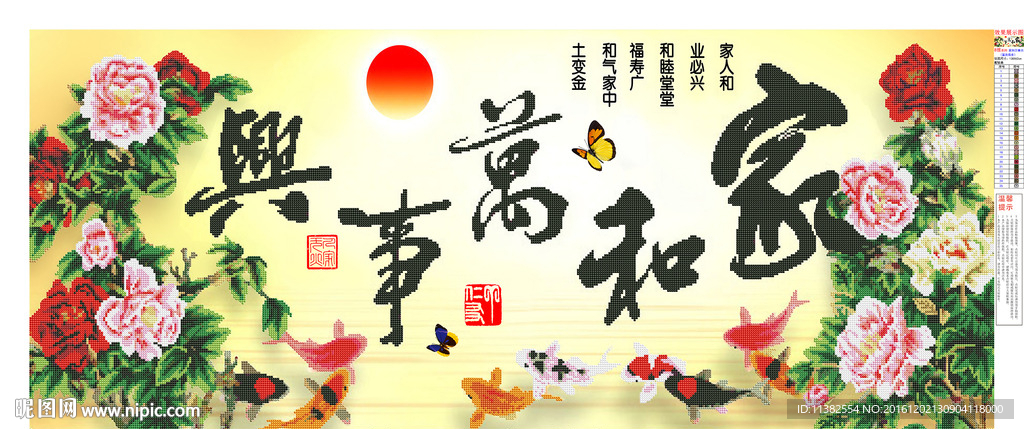 家和萬事興
家人和
业必兴
和睦堂堂
福寿广
和气家中
土变金
效果展示图
温馨
提示
昵图网 www.nipic.com
ID:11382554 NO:20161202130904118000